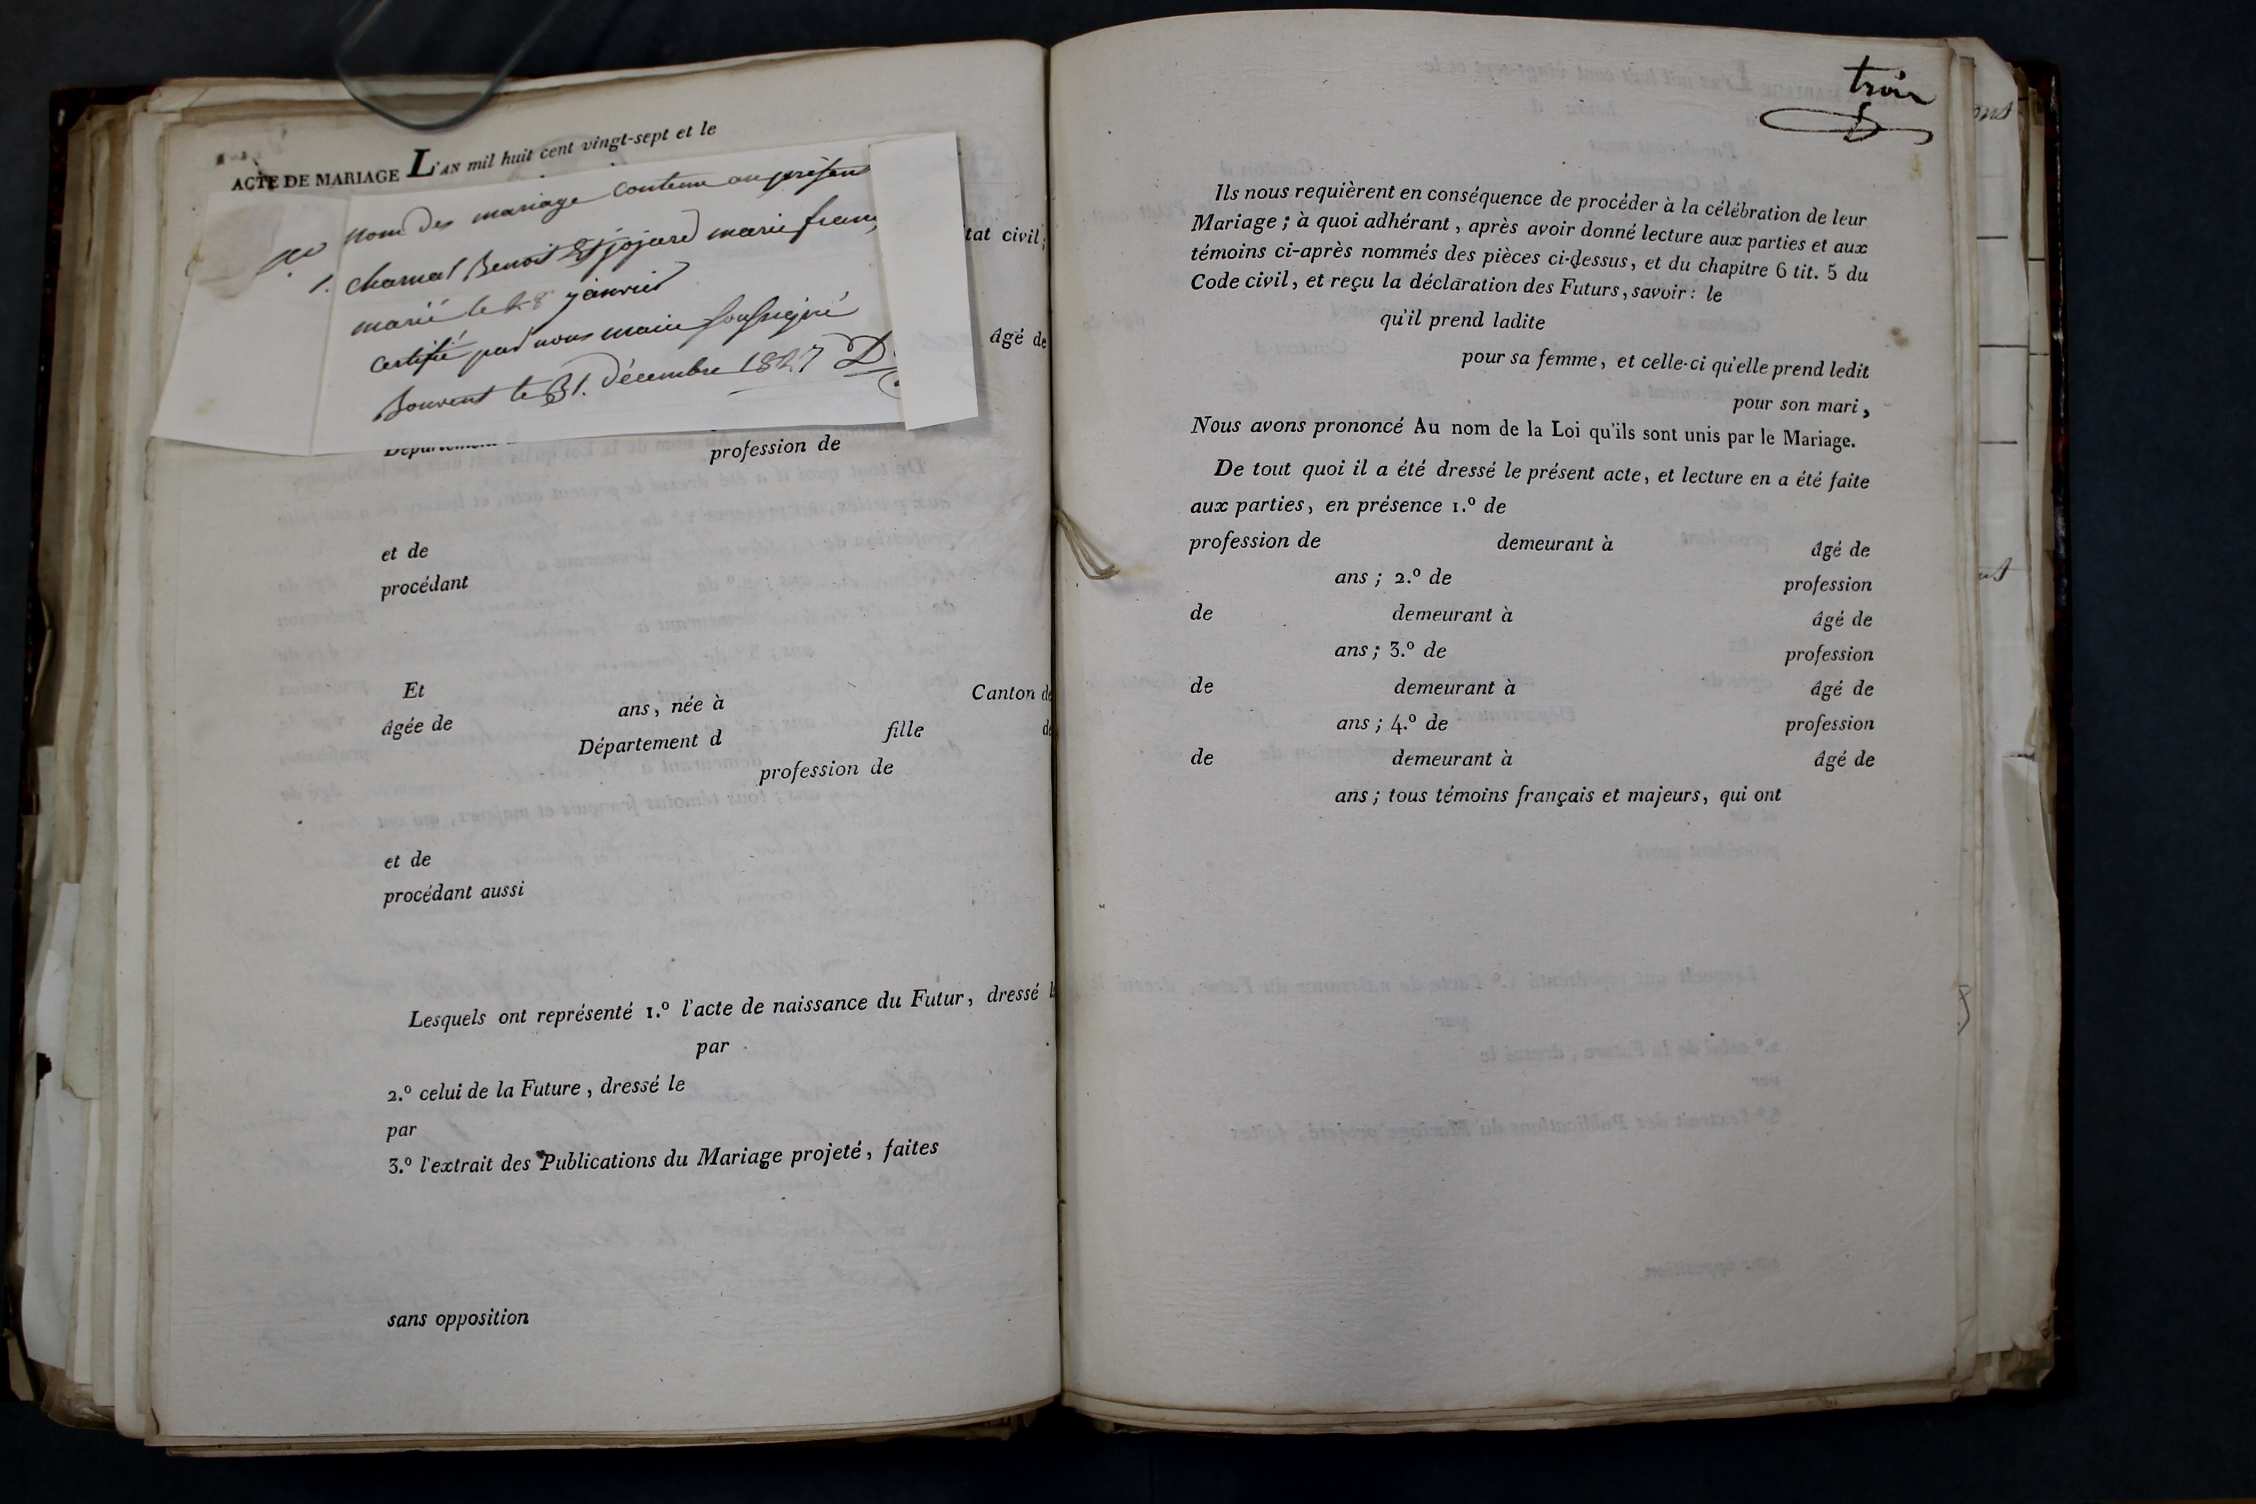 ACTE DE MARIAGE L'AN mil huit cent vingt-sept et le
nom des mariage contenu au présen
1. Chamal Benoit et jojard marie franç
marié le 28 janvier
certifié par nous maire soussigné
Bouvent le 31. décembre 1827
état civil;
âgé de
Département
profession de
et de
procédant
Et
Canton de
âgée de ans, née à
Département d fille de
profession de
et de
procédant aussi
Lesquels ont représenté 1.º l'acte de naissance du Futur, dressé l
par
2.º celui de la Future, dressé le
par
3.º l'extrait des Publications du Mariage projeté, faites
sans opposition
trois
Ils nous requièrent en conséquence de procéder à la célébration de leur
Mariage; à quoi adhérant, après avoir donné lecture aux parties et aux
témoins ci-après nommés des pièces ci-dessus, et du chapitre 6 tit. 5 du
Code civil, et reçu la déclaration des Futurs, savoir: le
qu'il prend ladite
pour sa femme, et celle-ci qu'elle prend ledit
pour son mari,
Nous avons prononcé Au nom de la Loi qu'ils sont unis par le Mariage.
De tout quoi il a été dressé le présent acte, et lecture en a été faite
aux parties, en présence 1.º de
profession de demeurant à âgé de
ans; 2.º de profession
de demeurant à âgé de
ans; 3.º de profession
de demeurant à âgé de
ans; 4.º de profession
de demeurant à âgé de
ans; tous témoins français et majeurs, qui ont